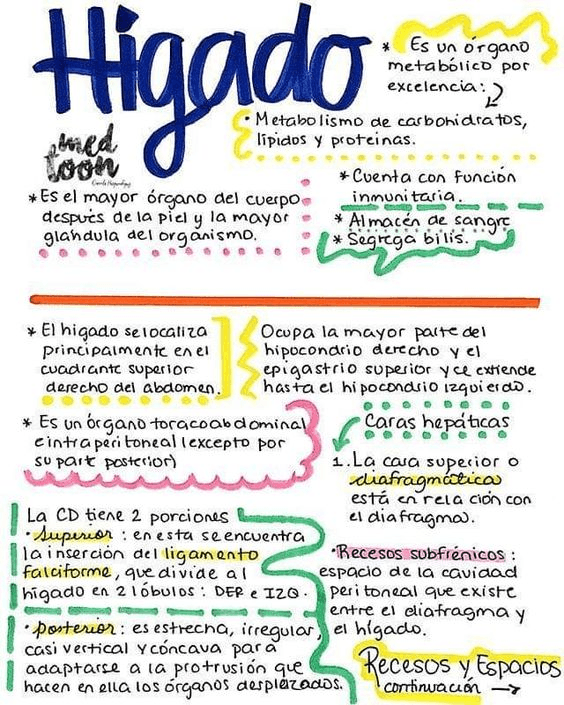 Hígado
* Es un órgano
metabólico por
excelencia:
• Metabolismo de carbohidratos,
lípidos y proteinas.
med
toon
* Cuenta con función
inmunitaria.
* Almacén de sangre
* Segrega bilis.
* Es el mayor órgano del cuerpo
después de la piel y la mayor
glandula del organismo.
* El higado se localiza
principalmente en el
cuadrante superior
derecho del abdomen.
Ocupa la mayor parte del
hipocondrio derecho y el
epigastrio superior y se extiende
hasta el hipocondrio izquierdo.
* Es un órgano toracoabdominal
e intraperitoneal (excepto por
su parte posterior)
Caras hepáticas
1. La cara superior o
diafragmática
está en relación con
el diafragma.
La CD tiene 2 porciones
• Superior : en esta se encuentra
la inserción del ligamento
falciforme, que divide al
hígado en 2 lóbulos : DER e IZQ.
• posterior : es estrecha, irregular,
casi vertical y cóncava para
adaptarse a la protrusión que
hacen en ella los órganos desplazados.
• Recesos subfrénicos :
espacio de la cavidad
peritoneal que existe
entre el diafragma y
el hígado.
Recesos y Espacios
continuación →